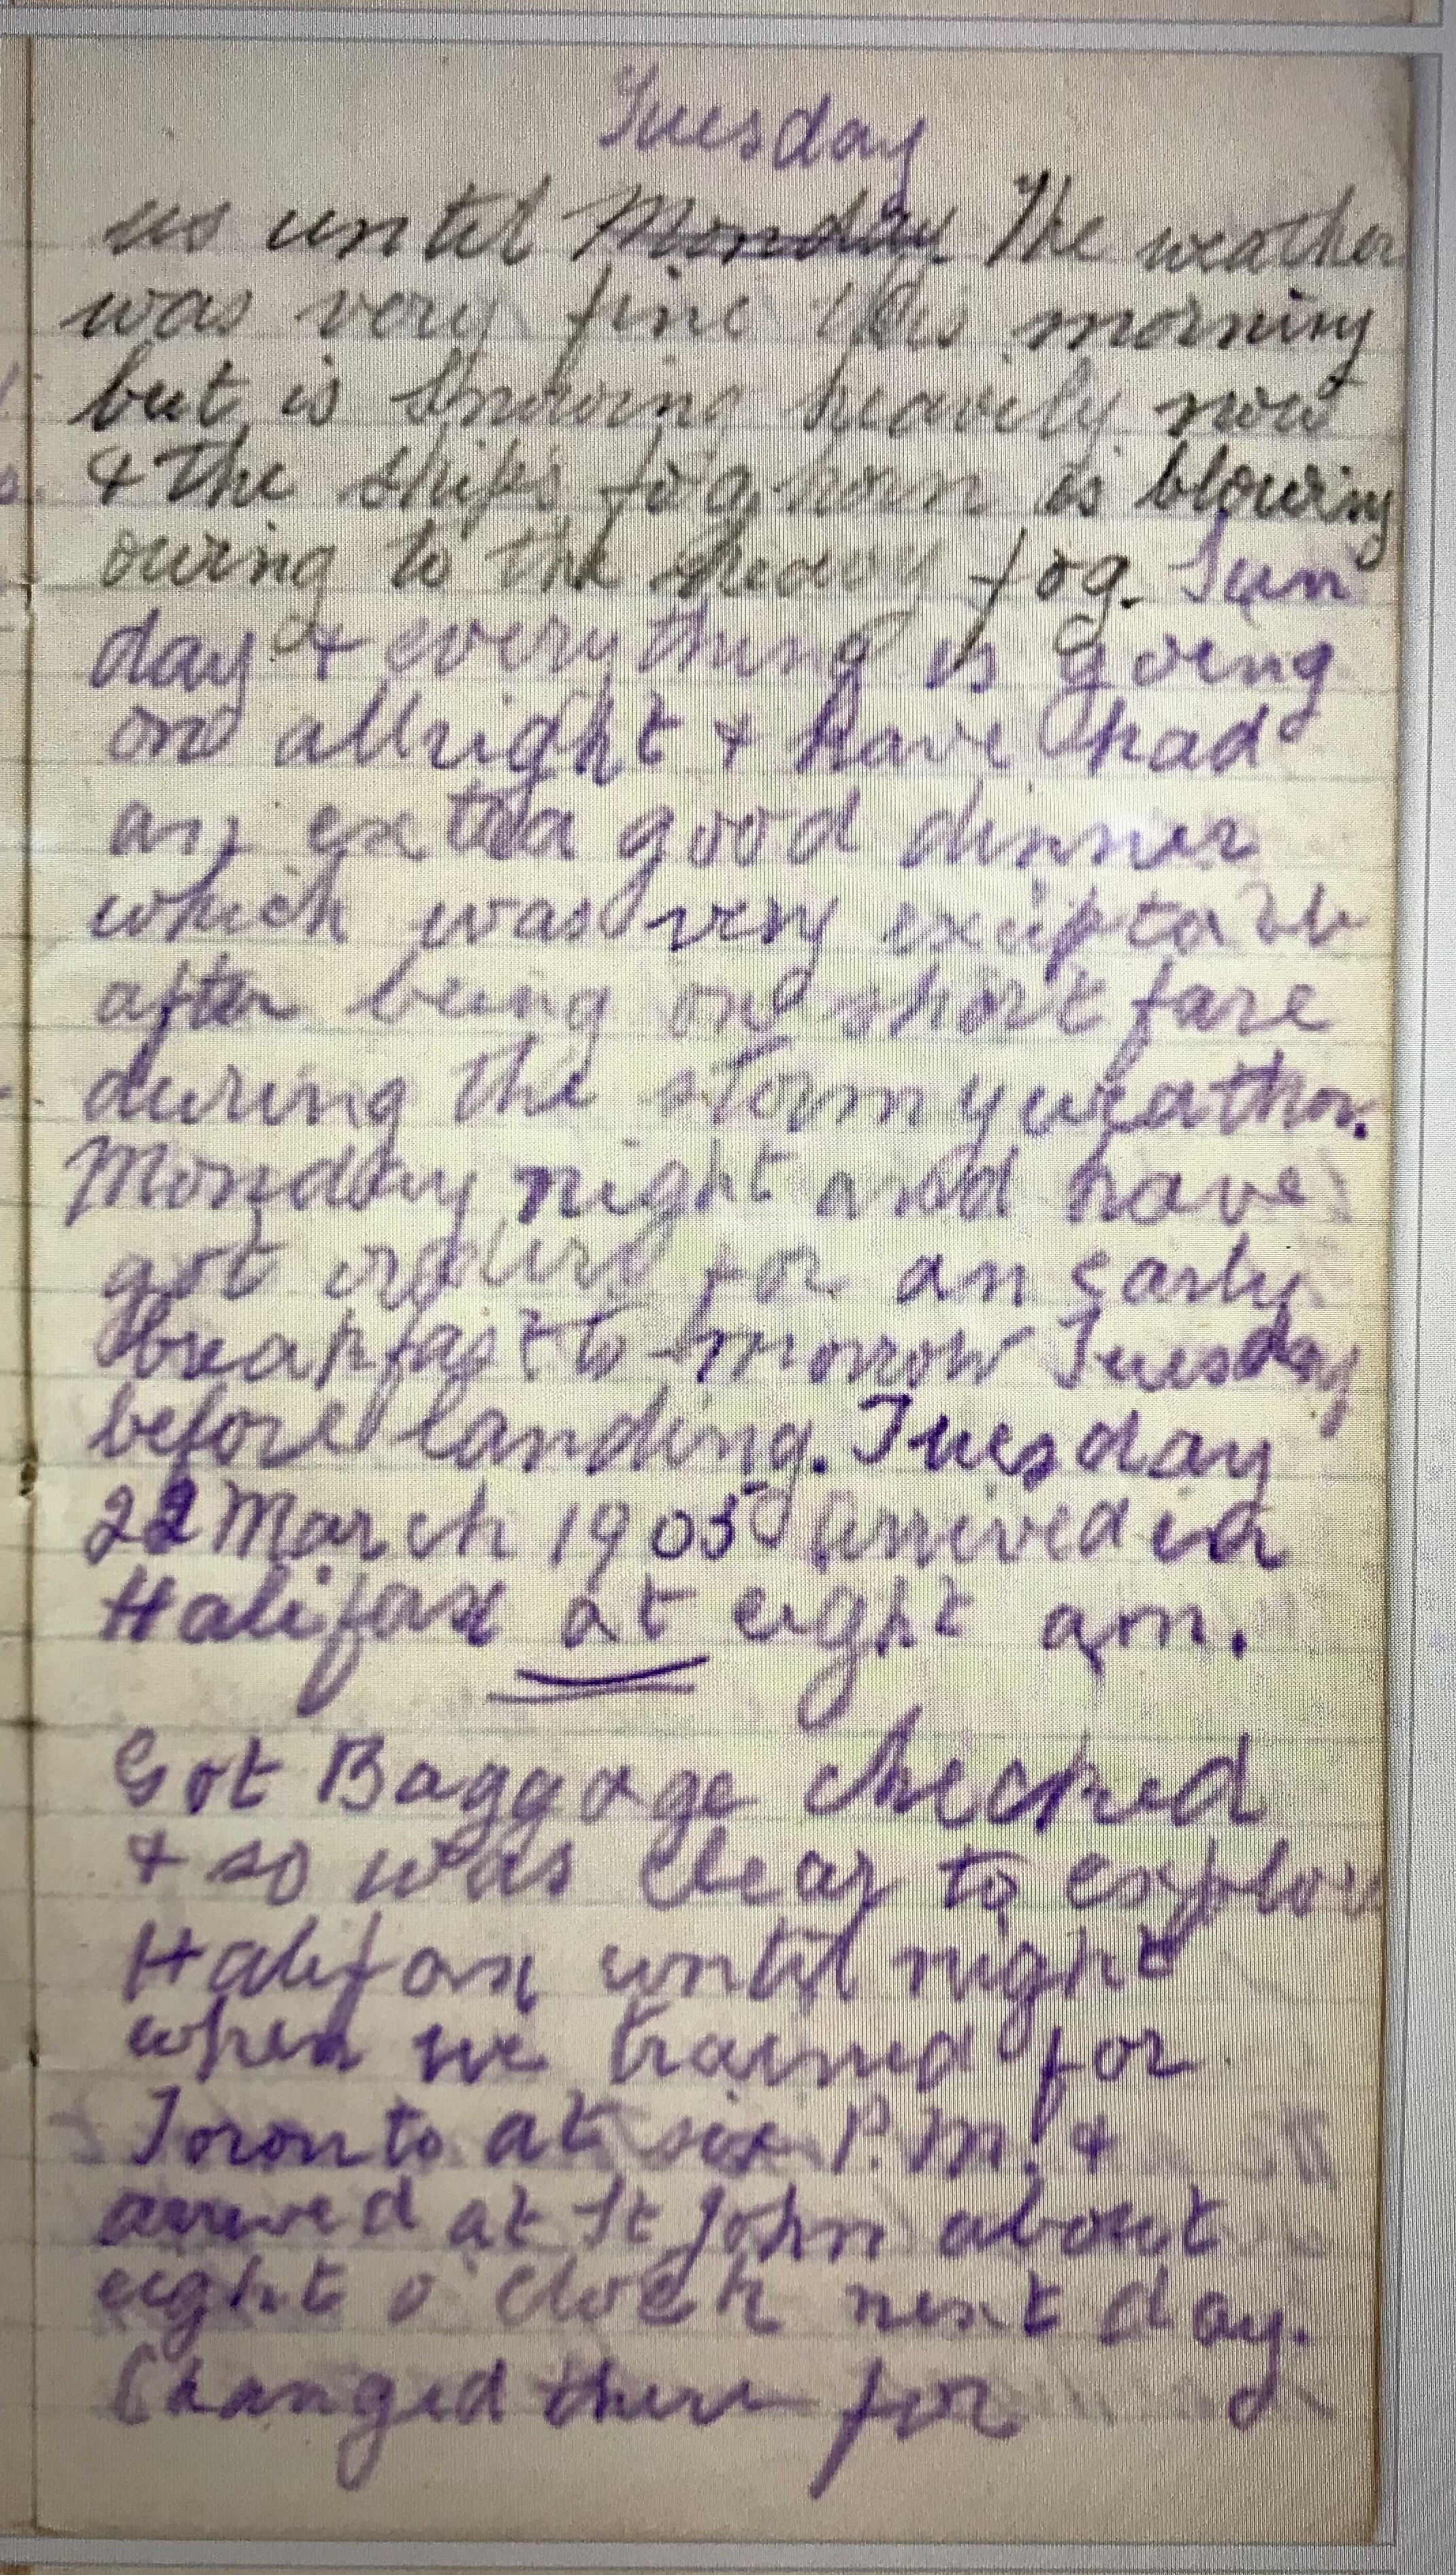 Tuesday
us until Monday. The weather
was very fine this morning
but is snowing heavily now
& the ships fog horn is blowing
owing to the heavy fog. Sun
day & everything is going
on allright & have had
an extra good dinner
which was very exceptable
after being on short fare
during the stormy weather.
Monday night and have
got orders for an early
breakfast to-morrow Tuesday
before landing. Tuesday
22 March 1905 Arrived in
Halifax at eight am.
Got Baggage checked
& so was clear to explor
Halifax until night
when we trained for
Toronto at six P.M. &
arrived at St John about
eight o'clock next day.
Changed there for